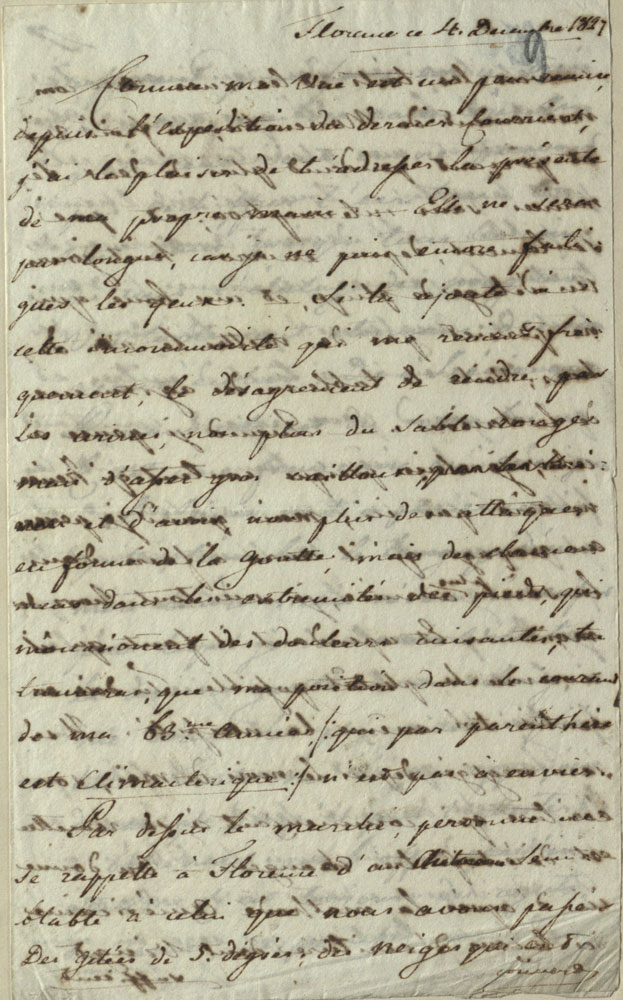 Florence ce 4. Decembre 1827
9
Comme ma vue est un peu remise
depuis l'expédition du dernier Courrier,
j'ai le plaisir de t'adresser la présente
de ma propre main. Elle ne sera
pas longue, car je ne puis encore fati-
guer les yeux. et, si tu ajoute à
cette incommodité qui me revient fré-
quement, le désagrément de rendre par
les urines, non plus du sable rouge
mais
et d'avoir, non plus des attaques
en forme de la goutte, mais des
dans les extremités des pieds, qui
m'occasionent des douleurs cuisantes, tu
trouveras, que ma position dans le courant
de ma 63.me Année /: qui par parenthèse
est Climacterique :/ n'est pas à envier.
Par dessus le marché, personne ici
se rappelle à Florence d'un Automne sem-
blable à celui que nous avons passé
Des gelées de 5. dégrés, des neiges qui ont